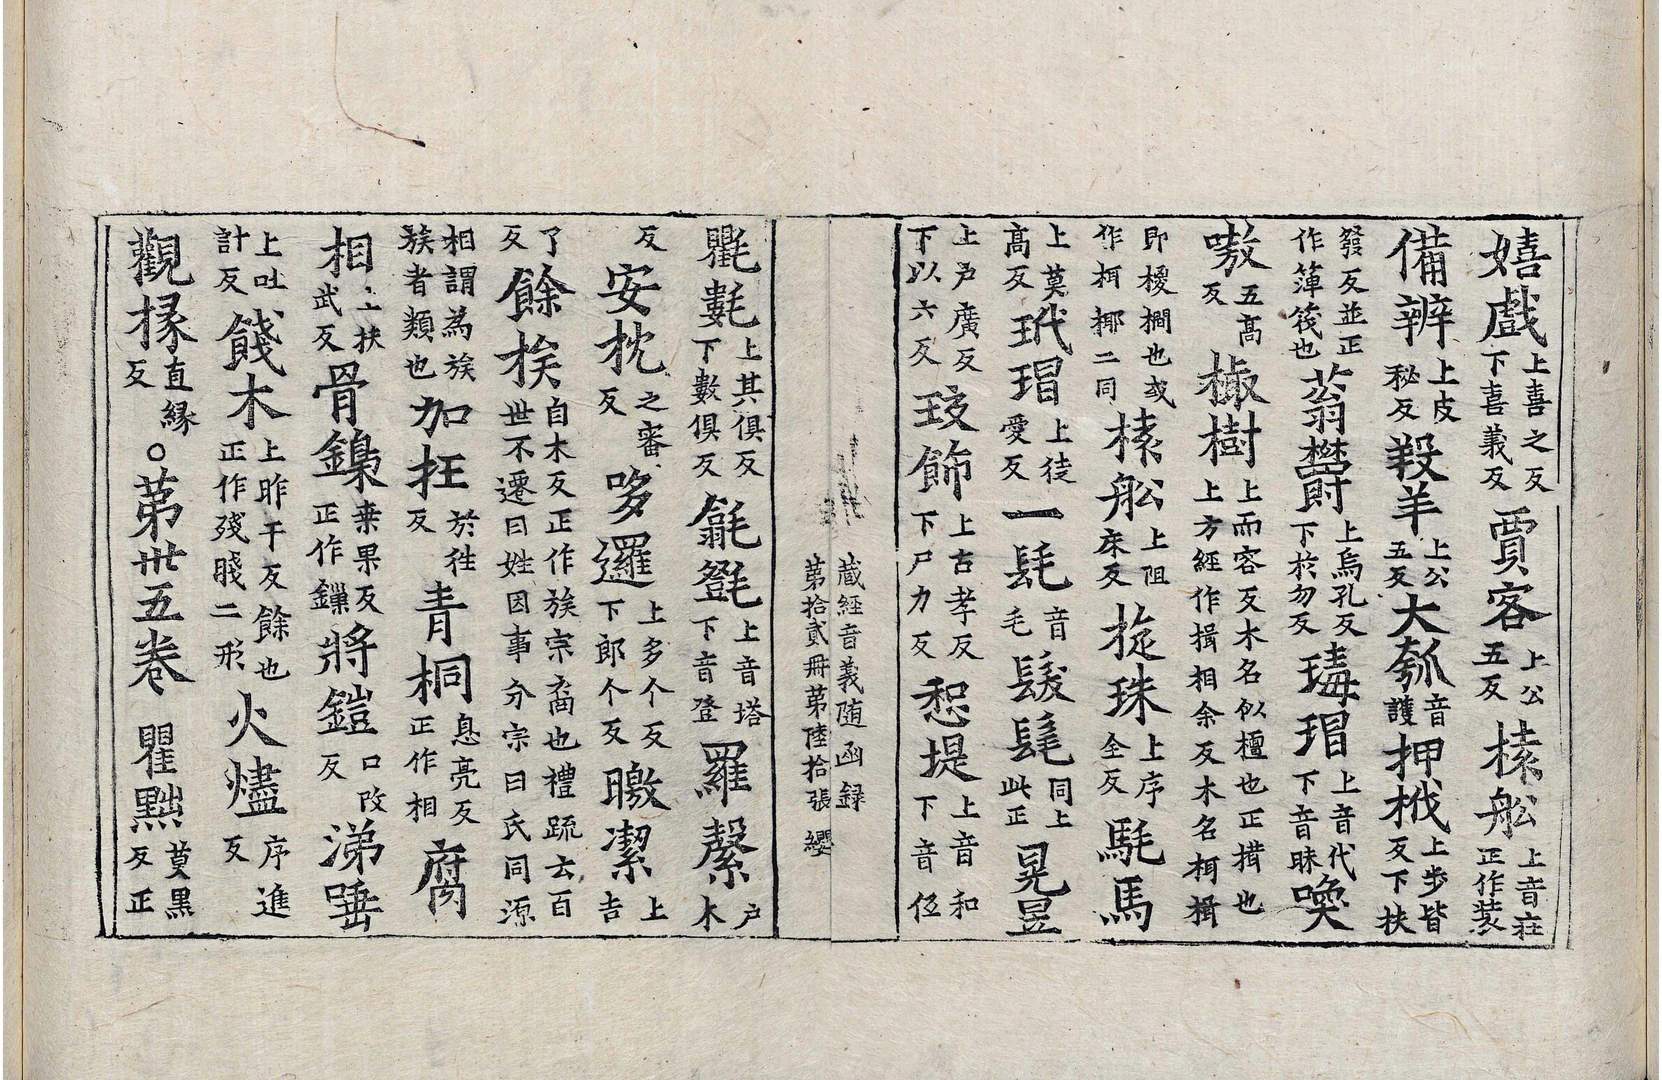 嬉戲上喜之反下喜義反賈客上公五反榡舩上音庄正作裝
備辦上皮秘反羖羊上公五反大瓠音護押栰上步皆反下扶
發反並正作䈬筏也蓊欝上烏孔反下於勿反瑇瑁上音代下音昧喚
嗷五髙反椒樹上而容反木名似檀也正搑也上方經作揖相余反木名楈揖
即椶櫚也或作枏㭨二同榡舩上阻床反㳬珠上序全反駞馬
上莫髙反玳瑁上徒愛反一髦音毛髲髦同上此正晃昱
上戸廣反下以六反玟飾上古孝反下尸力反恕堤上音和下音伍
藏經音義随函録
第拾貳冊第陸拾張 纓
氍𣯜上其俱反下數俱反㲩㲪上音塔下音登羅縏戶木
反安枕之審反哆邏上多个反下郎个反曒潔上吉
了反餘挨自木反正作族宗裔也禮䟽云百世不遷曰姓因事分宗曰氏同源
相謂為族族者類也加抂於往反青桐息亮反正作相腐
相上扶武反骨鎳桒果反正作鏁將鎧口改反涕唾
上吐計反餞木上昨干反餘也正作殘賎二形火燼序進反
觀掾直縁反○第卅五卷瞿㸃莫黒反正